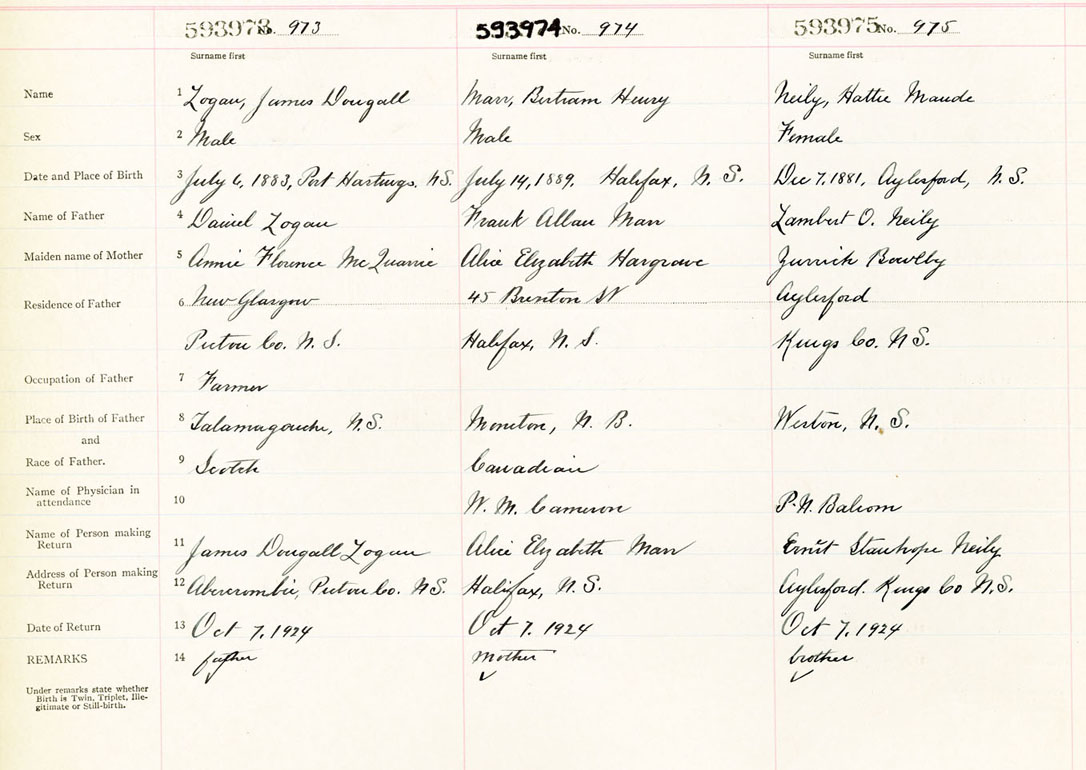 593973 No. 973 593974 No. 974 593975 No. 975
Surname first Surname first Surname first
Name 1 Logan, James Dougall Marr, Bertram Henry Neily, Hattie Maude
Sex 2 Male Male Female
Date and Place of Birth 3 July 6, 1883, Port Hastings. N.S. July 14, 1889. Halifax, N. S. Dec 7, 1881, Aylesford, N. S.
Name of Father 4 Daniel Logan Frank Allan Marr Lambert O. Neily
Maiden name of Mother 5 Annie Florence McQuarrie Alice Elizabeth Hargrave Bowlby
Residence of Father 6 New Glasgow 45 Brenton St Aylesford
Pictou Co. N. S. Halifax, N. S. Kings Co. N S.
Occupation of Father 7 Farmer
Place of Birth of Father 8 Tatamagouche, N.S. Moncton, N. B. Weston, N. S.
and
Race of Father. 9 Scotch Canadian
Name of Physician in
attendance 10 W. M. Cameron P. N. Balcom
Name of Person making
Return 11 James Dougall Logan Alice Elizabeth Marr Ernest Stanhope Neily
Address of Person making
Return 12 Abercrombie, Pictou Co. N.S. Halifax, N. S. Aylesford. Kings Co N.S.
Date of Return 13 Oct 7, 1924 Oct 7. 1924 Oct 7, 1924
REMARKS 14 mother brother
Under remarks state whether
Birth is Twin, Triplet, Ille-
gitimate or Still-birth.